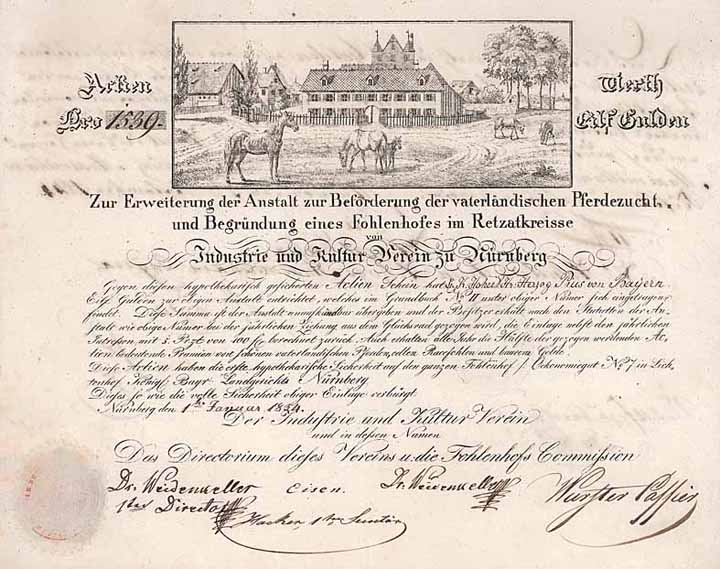 Actien
Nro 1539.
Werth
Eilf Gulden
Zur Erweiterung der Anstalt zur Beförderung der vaterländischen Pferdezucht
und Begründung eines Fohlenhofes im Retzatkreisse
von
Industrie und Kultur Verein zu Nürnberg
Gegen diesen hypothekarisch gesicherten Actien Schein hat Herzog Pius von Bayern
Eilf Gulden zur obigen Anstalt entrichtet, welches im Grundbuch No II unter obiger Numer sich eingetragen
findet. Diese Summa ist der Anstalt unaufkündbar übergeben und der Besitzer erhält nach den Statutten der An-
stalt wie obige Numer bei der jährlichen Ziehung aus dem Glücksrad gezogen wird, die Einlage nebst den jährlichen
Intressen mit 5 Pzt von 100 berechnet zurück. Auch erhalten alle Jahr die Hälfte der gezogen werdenden Ac-
tien bedeutende Prämien von schönen vaterländischen Pferden, edlen Racefohlen und baarem Gelde.
Diese Actien haben die erste hypothekarische Sicherheit auf den ganzen Fohlenhof / Oekonomiegut No 7 in Lich-
tenhof Königl. Bayr. Landgerichts Nürnberg.
Dieses so wie die volle Sicherheit obiger Einlage verbürgt
Nürnberg den 1ten Januar 1834.
Der Industrie und Kultur Verein
und in dessen Namen
Das Directorium dieses Vereins u. die Fohlenhofs Commission
Dr. Weidenkeller
Eisen.
Dr. Weidenkeller
Wurster Cassier
1ter Director
Hacker 1ter Secretär